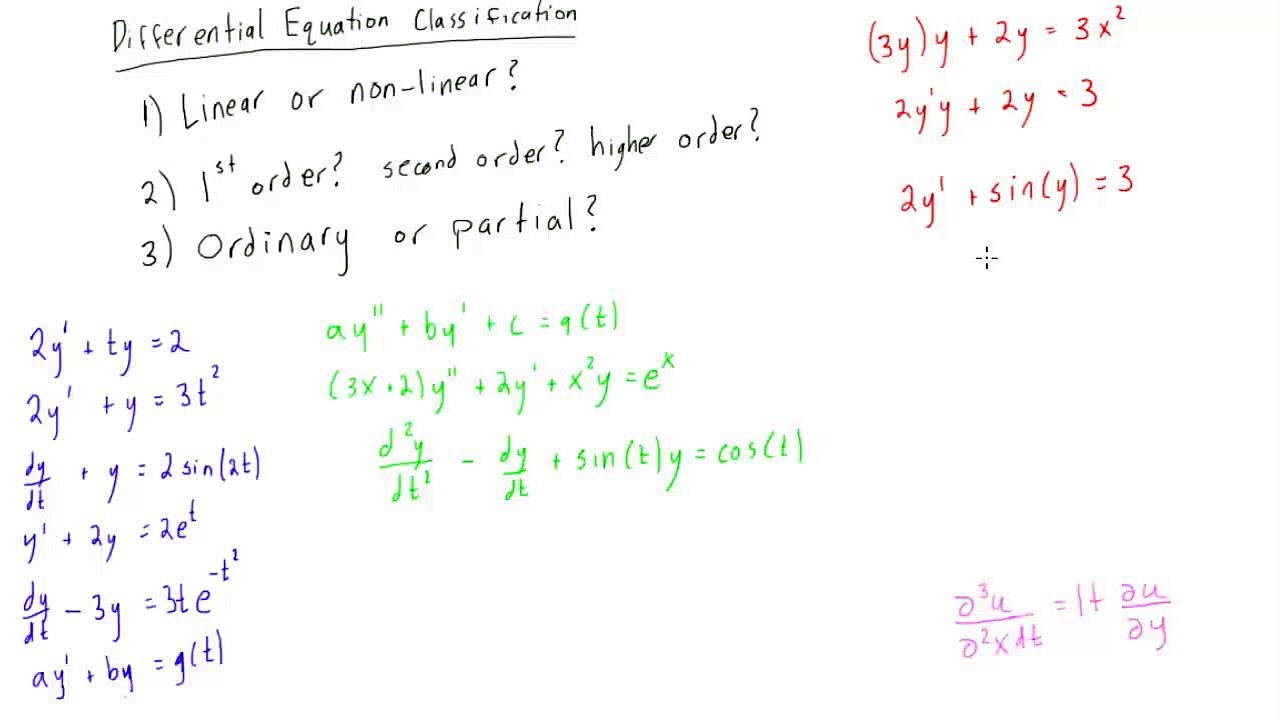 Differential Equation Classification
1) Linear or non-linear?
2) 1st order? second order? higher order?
3) Ordinary or partial?
(3y)y + 2y = 3x²
2y'y + 2y = 3
2y' + sin(y) = 3
2y' + ty = 2
2y' + y = 3t²
dy/dt + y = 2 sin(2t)
y' + 2y = 2e^t
dy/dt - 3y = 3te^(-t²)
ay' + by = g(t)
ay'' + by' + c = g(t)
(3x+2)y'' + 2y' + x²y = e^x
d²y/dt² - dy/dt + sin(t)y = cos(t)
∂³u/∂²x∂t = 1+ ∂u/∂y